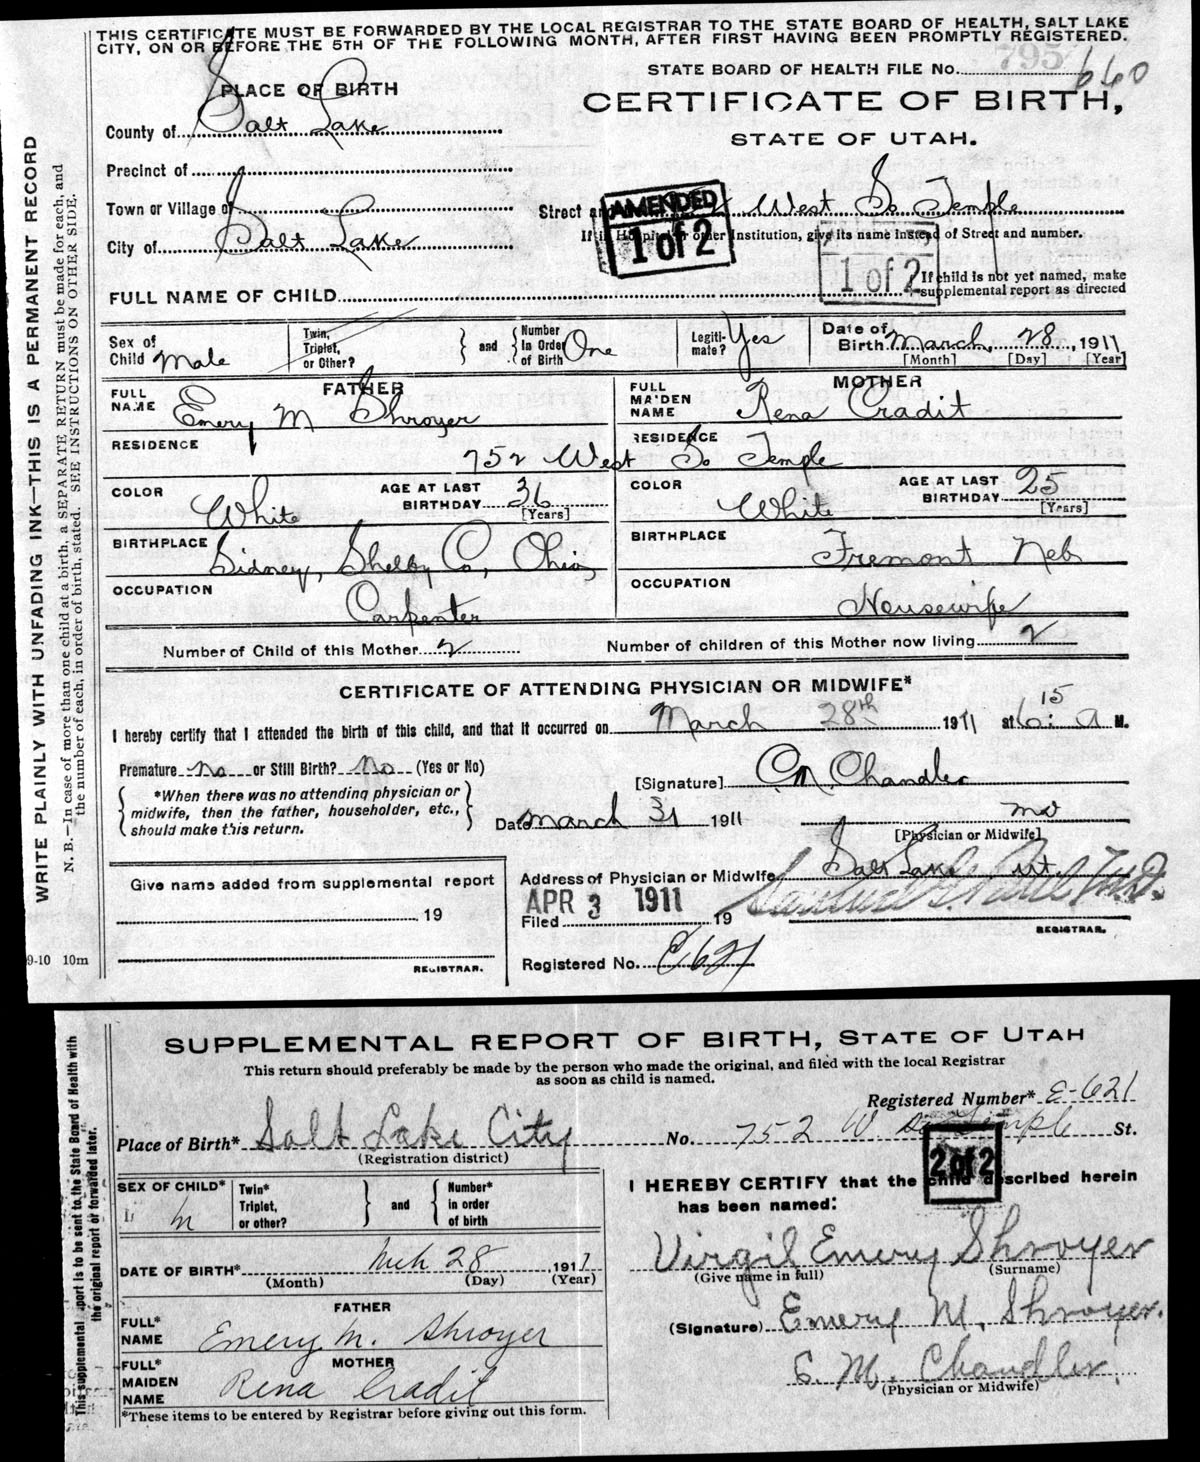 THIS CERTIFICATE MUST BE FORWARDED BY THE LOCAL REGISTRAR TO THE STATE BOARD OF HEALTH, SALT LAKE
CITY, ON OR BEFORE THE 5TH OF THE FOLLOWING MONTH, AFTER FIRST HAVING BEEN PROMPTLY REGISTERED.
795
STATE BOARD OF HEALTH FILE No. 660
PLACE OF BIRTH
CERTIFICATE OF BIRTH,
STATE OF UTAH.
County of Salt Lake
Precinct of
Town or Village of
Street and West So Temple
AMENDED
1 of 2
If in Hospital or other Institution, give its name instead of Street and number.
City of Salt Lake
1 of 2
FULL NAME OF CHILD
If child is not yet named, make
supplemental report as directed
Sex of Child Male
Twin, Triplet, or Other? and Number in Order of Birth One
Legitimate? Yes
Date of Birth March, 28, 1911
[Month] [Day] [Year]
FATHER
FULL NAME Emery M Shroyer
MOTHER
FULL MAIDEN NAME Rena Cradit
RESIDENCE RESIDENCE
752 West So Temple
COLOR White AGE AT LAST BIRTHDAY 36 [Years]
COLOR White AGE AT LAST BIRTHDAY 25 [Years]
BIRTHPLACE Sidney, Shelby Co, Ohio
BIRTHPLACE Fremont Neb
OCCUPATION Carpenter
OCCUPATION Housewife
Number of Child of this Mother 2 Number of children of this Mother now living 2
CERTIFICATE OF ATTENDING PHYSICIAN OR MIDWIFE*
I hereby certify that I attended the birth of this child, and that it occurred on March 28th 1911 at 6:15 a M.
Premature No or Still Birth? No (Yes or No)
[Signature] C M Chandler
*When there was no attending physician or
midwife, then the father, householder, etc.,
should make this return.
Date March 31 1911 MD
[Physician or Midwife]
Give name added from supplemental report
19
REGISTRAR.
Address of Physician or Midwife Salt Lake Ut.
APR 3 1911
Filed 19
M.D.
REGISTRAR.
Registered No. E,621
9-10 10m
WRITE PLAINLY WITH UNFADING INK—THIS IS A PERMANENT RECORD
N. B.—In case of more than one child at a birth, a SEPARATE RETURN must be made for each, and
the number of each, in order of birth, stated. SEE INSTRUCTIONS ON OTHER SIDE.
SUPPLEMENTAL REPORT OF BIRTH, STATE OF UTAH
This return should preferably be made by the person who made the original, and filed with the local Registrar
as soon as child is named.
Registered Number* E-621
Place of Birth* Salt Lake City No. 752 W. So Temple St.
(Registration district)
2 of 2
SEX OF CHILD* M
Twin* Triplet, or other? and Number* in order of birth
I HEREBY CERTIFY that the child described herein
has been named:
Virgil Emery Shroyer
(Give name in full) (Surname)
DATE OF BIRTH* Mch 28 1911
(Month) (Day) (Year)
FATHER
FULL* NAME Emery M. Shroyer
(Signature) Emery M, Shroyer.
MOTHER
FULL* MAIDEN NAME Rena Cradit
C. M. Chandler
(Physician or Midwife)
*These items to be entered by Registrar before giving out this form.
This supplemental report is to be sent to the State Board of Health with
the original report or forwarded later.